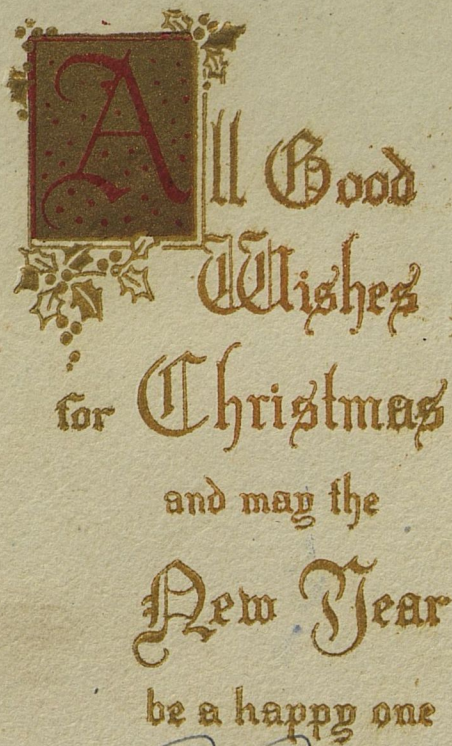 All Good
Wishes
for Christmas
and may the
New Year
be a happy one